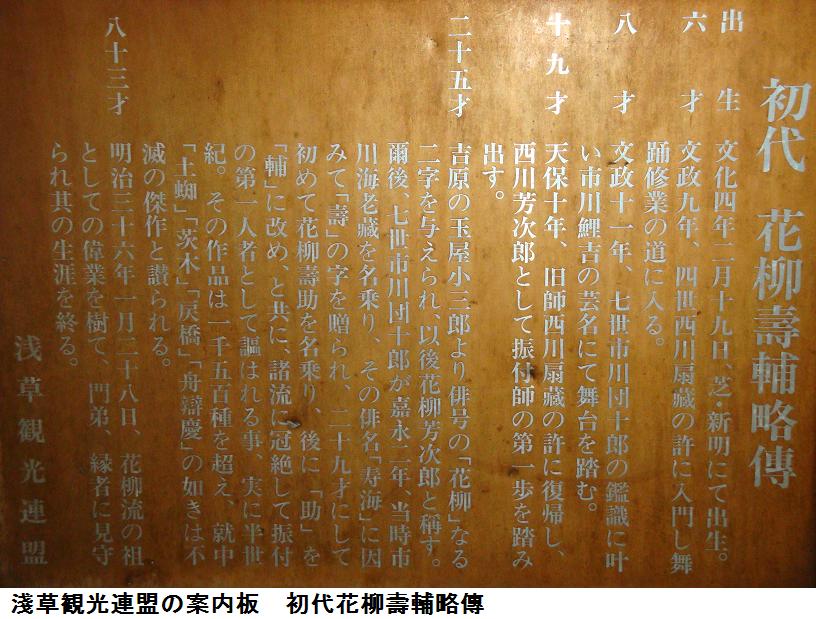 初代 花柳壽輔略傳
出生 文化四年二月十九日、芝・新明にて出生。
六才 文政九年、四世西川扇藏の許に入門し舞
踊修業の道に入る。
八才 文政十一年、七世市川団十郎の鑑識に叶
い市川鯉吉の芸名にて舞台を踏む。
十九才 天保十年、旧師西川扇藏の許に復帰し、
西川芳次郎として振付師の第一歩を踏み
出す。
二十五才 吉原の玉屋小三郎より俳号の「花柳」なる
二字を与えられ、以後花柳芳次郎と稱す。
爾後、七世市川団十郎が嘉永二年、当時市
川海老藏を名乗り、その俳名「寿海」に因
みて「壽」の字を贈られ、二十九才にして
初めて花柳壽助を名乗り、後に「助」を
「輔」に改め、と共に、諸流に冠絶して振付
の第一人者として謳はれる事、実に半世
紀。その作品は一千五百種を超え、就中
「土蜘」「茨木」「戻橋」「舟辯慶」の如きは不
滅の傑作と讃られる。
八十三才 明治三十六年一月二十八日、花柳流の祖
としての偉業を樹て、門弟、縁者に見守
られ其の生涯を終る。
浅草観光連盟
淺草観光連盟の案内板 初代花柳壽輔略傳